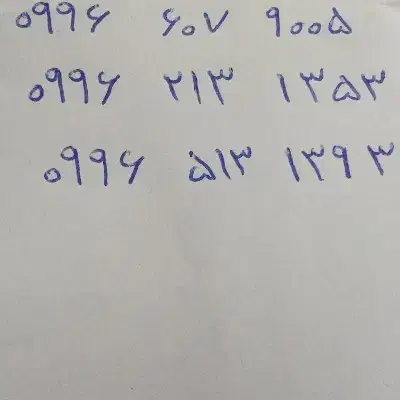 ۰۹۹۶ ۶۰۷ ۹۰۰۵
۰۹۹۶ ۲۱۳ ۱۳۵۳
۰۹۹۶ ۵۱۳ ۱۳۹۳